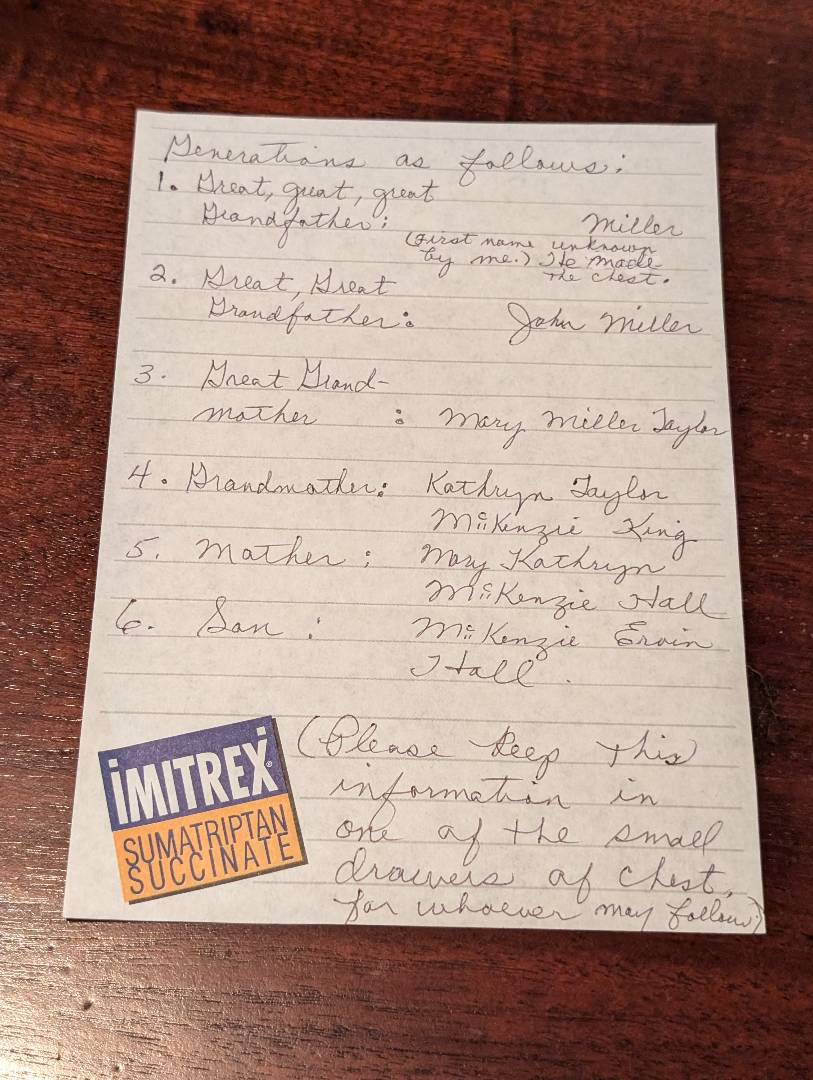 Generations as follows:
1. Great, great, great
Grandfather: Miller
(First name unknown
by me.) He made
the chest.
2. Great, Great
Grandfather: John Miller
3. Great Grand-
mother : Mary Miller Taylor
4. Grandmother: Kathryn Taylor
McKenzie King
5. Mother: Mary Kathryn
McKenzie Hall
6. Son: McKenzie Ervin
Hall.
(Please keep this
information in
one of the small
drawers of chest,
for whoever may follow.)
iMITREX®
SUMATRIPTAN
SUCCINATE